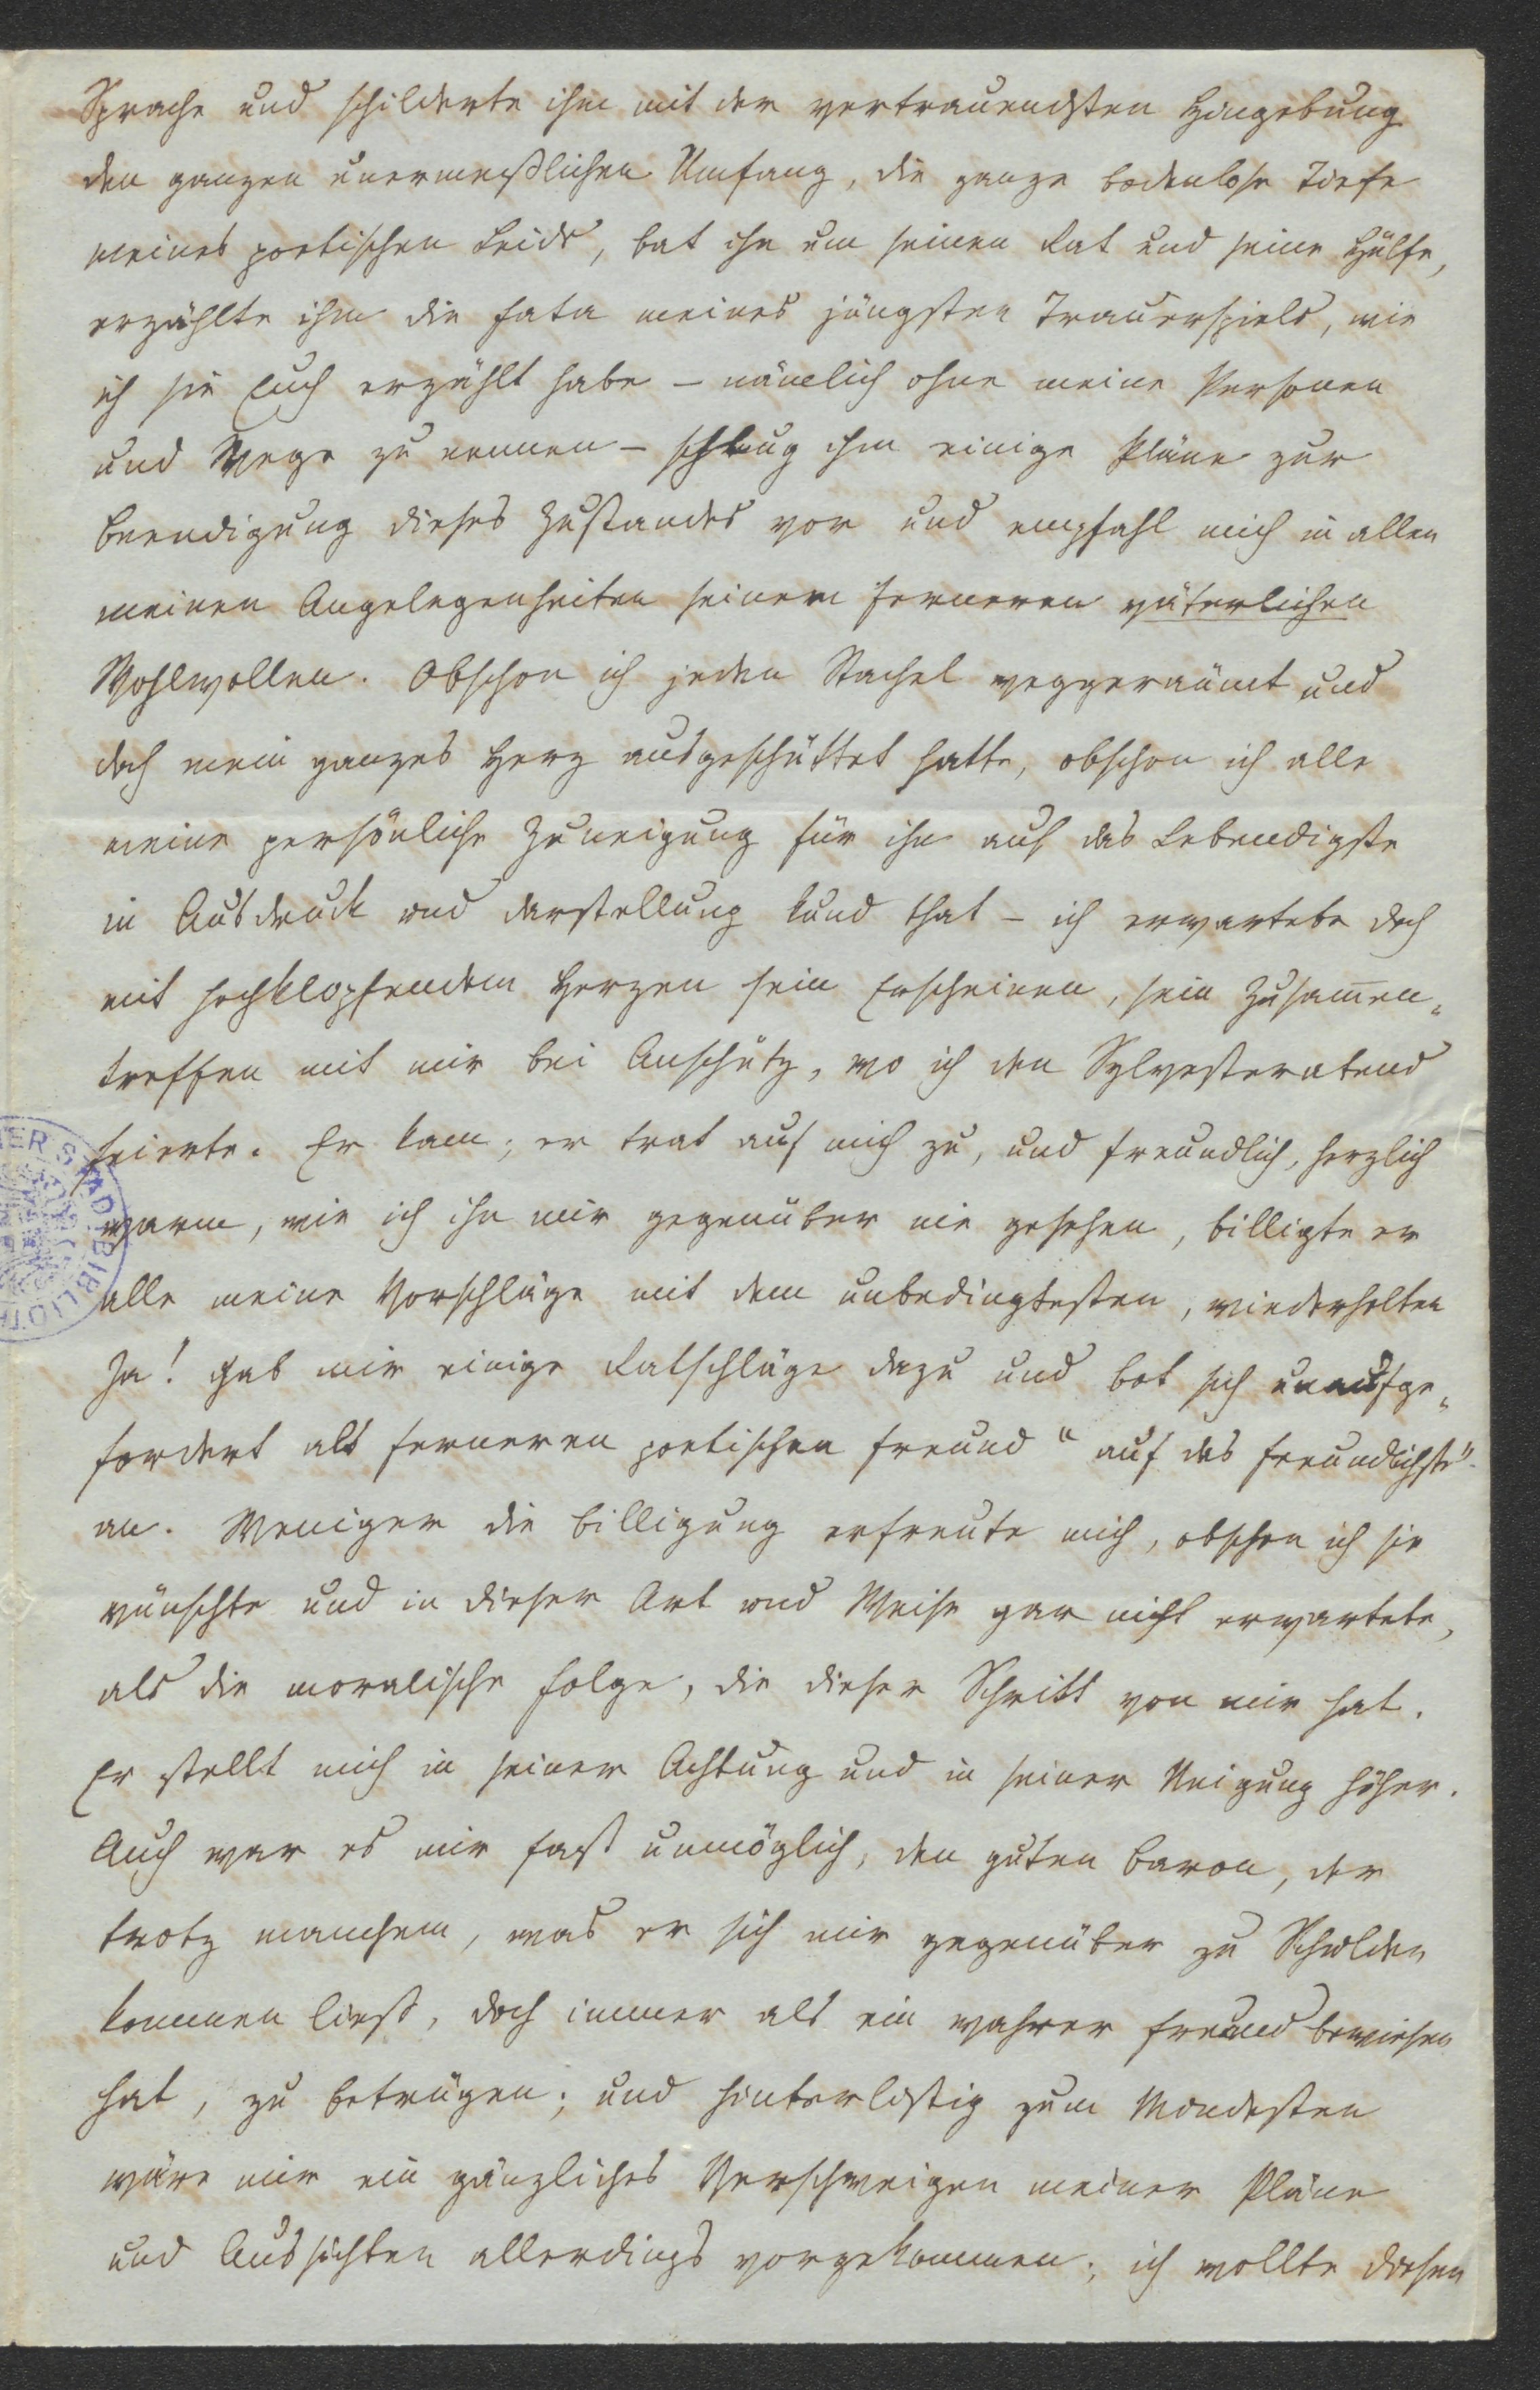 Sprache und schilderte ihm mit der vertrauendsten Hingebung
den ganzen unermeßlichen Umfang, die ganze bodenlose Tiefe
meines poetischen Leids, bat ihn um seinen Rat und seine Hülfe,
erzählte ihm die Fata meines jüngsten Trauerspiels, wie
ich sie Euch erzählt habe – nämlich ohne meine Personen
und Wege zu nennen – schlug ihm einige Pläne zur
Beendigung dieses Zustandes vor und empfahl mich in allen
meinen Angelegenheiten seinem ferneren väterlichen
Wohlwollen. Obschon ich jeden Stachel weggeräumt und
doch mein ganzes Herz ausgeschüttet hatte, obschon ich alle
meine persönliche Zuneigung für ihn auf das Lebendigste
in Ausdruck und Darstellung kund that – ich erwartete doch
mit hochklopfendem Herzen sein Erscheinen, sein Zusam̅en„
treffen mit mir bei Anschütz, wo ich den Sylvesterabend
feierte. Er kam; er trat auf mich zu, und freundlich, herzlich
warm, wie ich ihn mir gegenüber nie gesehen, billigte er
alle meine Vorschläge mit dem unbedingtesten, wiederholten
Ja! gab mir einige Ratschläge dazu und bot sich unaufge„
fordert als ferneren poetischen Freund "auf das freundlichste"
an. Weniger die Billigung erfreute mich, obschon ich sie
wünschte und in dieser Art und Weise gar nicht erwartete,
als die moralische Folge, die dieser Schritt von mir hat.
Er stellt mich in seiner Achtung und in seiner Neigung höher.
Auch war es mir fast unmöglich, den guten Baron, der
trotz manchem, was er sich mir gegenüber zu Schulden
kommen ließ, doch immer als ein wahrer Freund bewiesen
hat, zu betrügen; und hinterlistig zum Mindesten
wäre mir ein gänzliches Verschweigen meiner Pläne
und Aussichten allerdings vorgekommen; ich wollte diesen